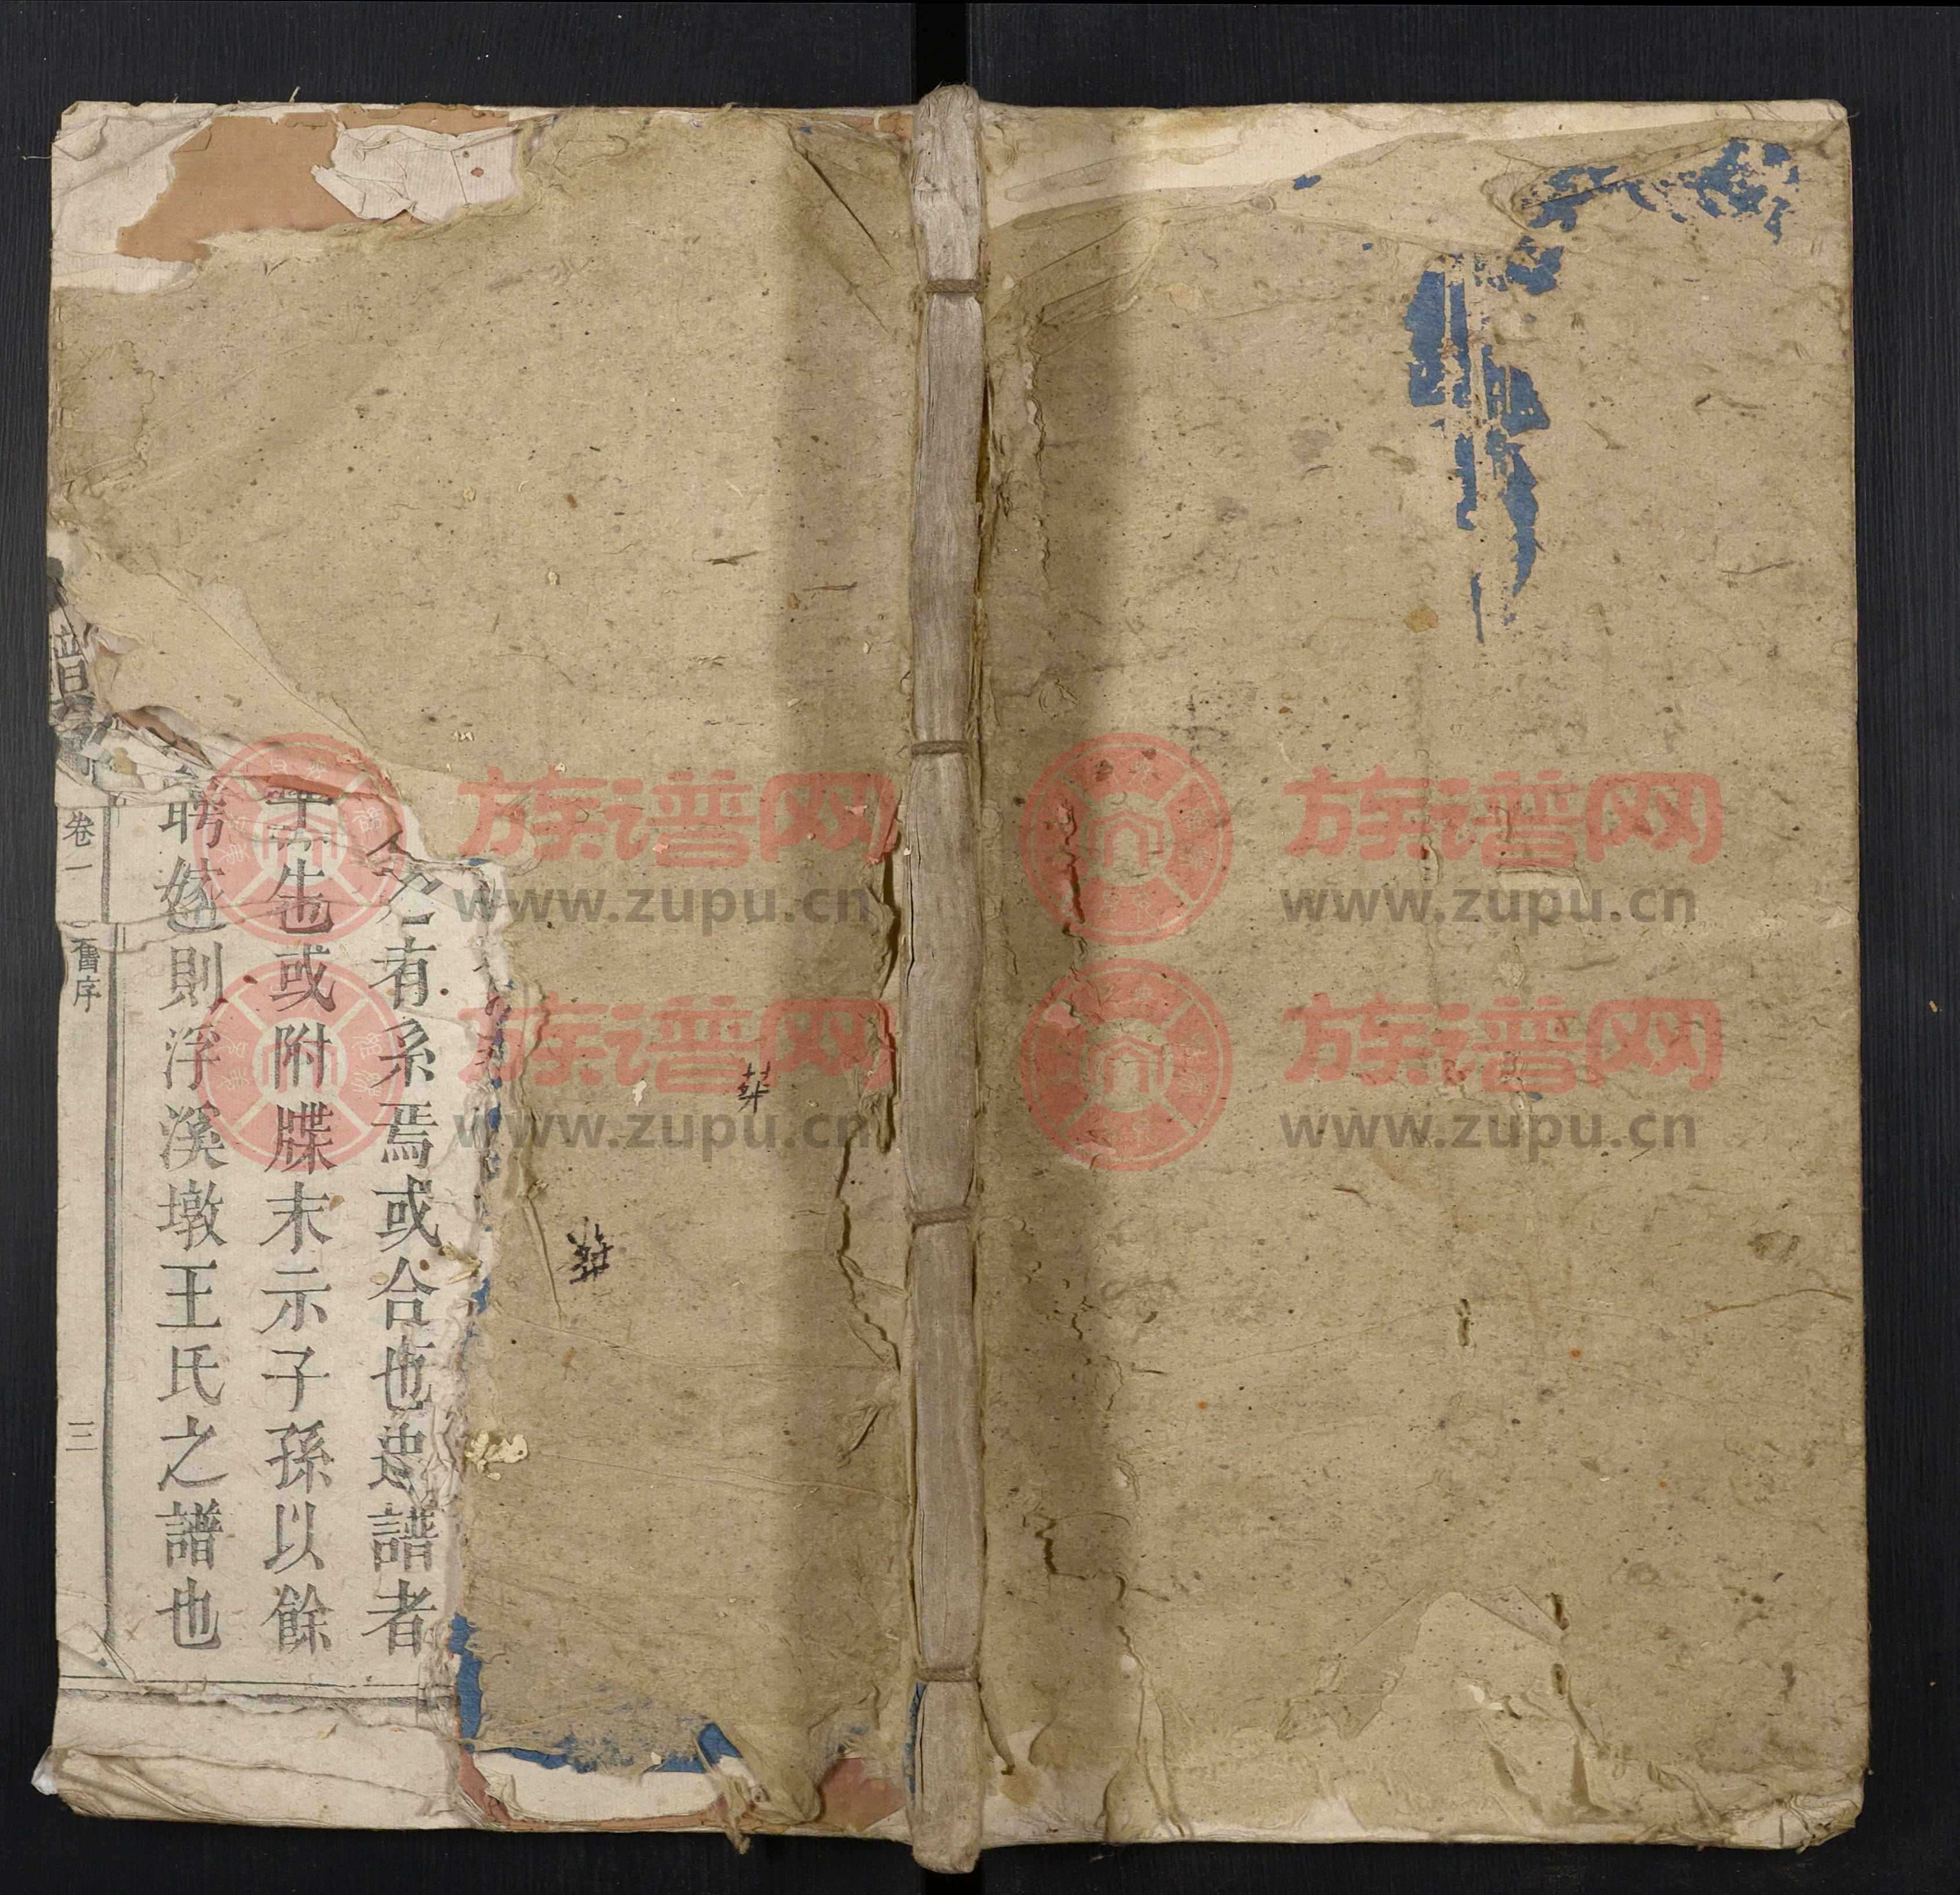 有系焉或合也 譜者
生也或附牒末示子孫以餘
聘嫁也則浮溪墩王氏之譜也
譜
卷一
舊序
三
族谱网
www.zupu.cn
族谱网
www.zupu.cn
族谱网
www.zupu.cn
族谱网
www.zupu.cn